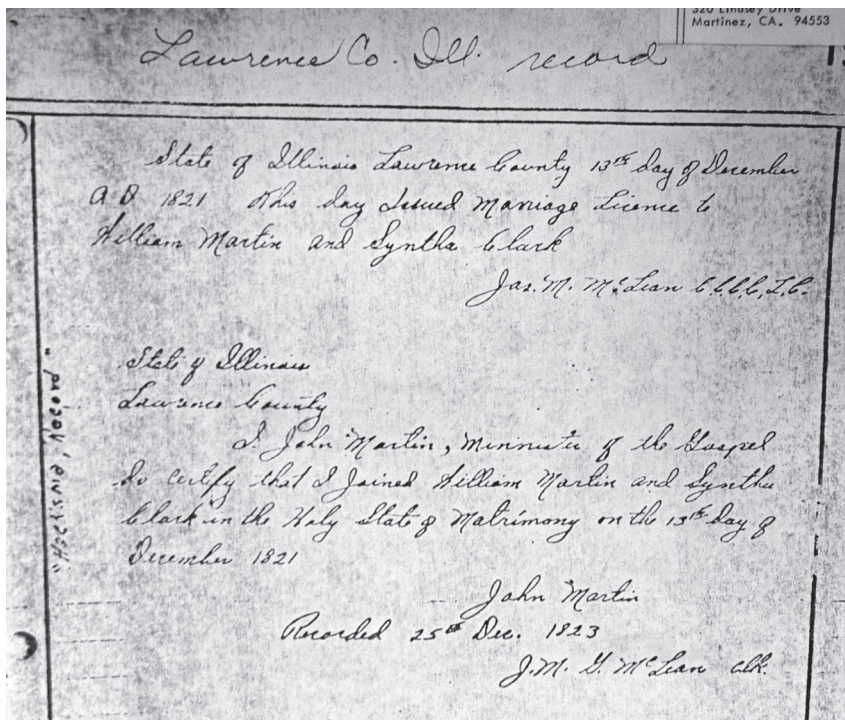 320 Lindsey Drive
Martinez, CA. 94553
Lawrence Co. Ill. record
State of Illinois Lawrence County 13th day of December
A D 1821 This day Issued Marriage Licence to
William Martin and Syntha Clark
Jas. M. McLean C.C.C.C, L.C.
State of Illinois
Lawrence County
I John Martin, Minnister of the Gospel
do certify that I Joined William Martin and Syntha
Clark in the Holy State of Matrimony on the 13th day of
December 1821
John Martin
Recorded 25th Dec. 1823
J.M. G. McLean clk.
Record"